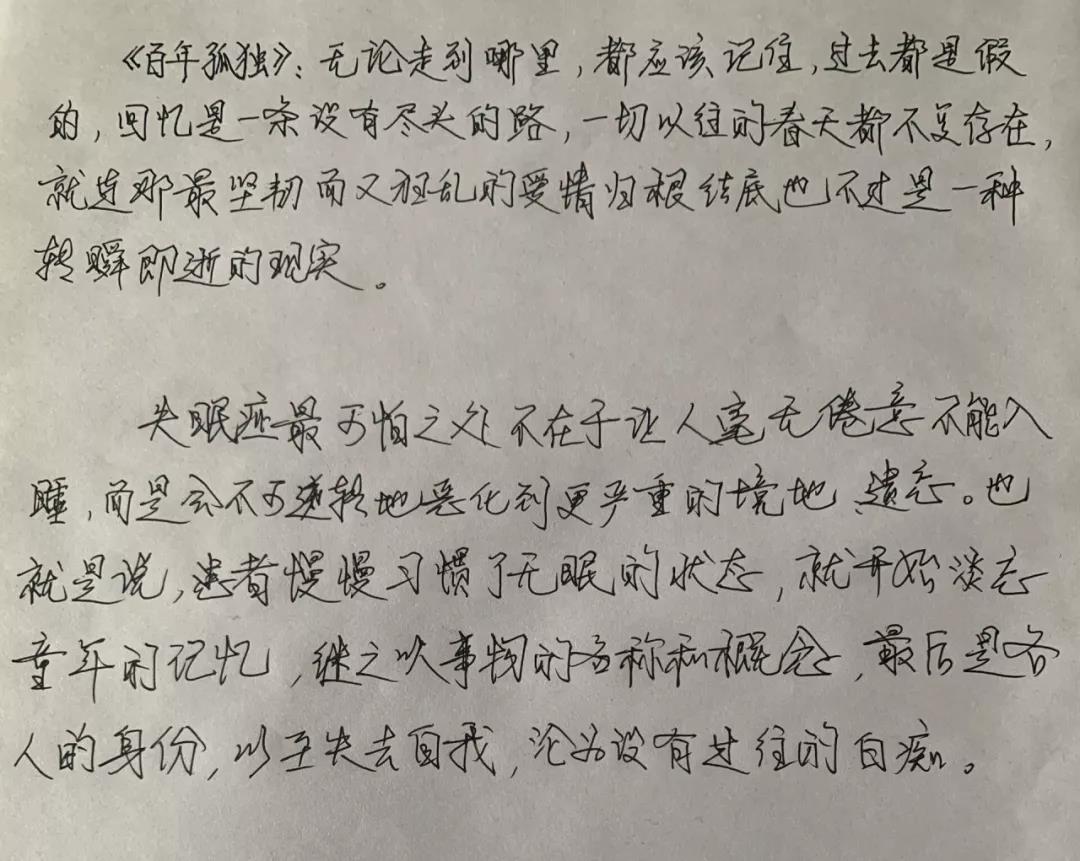 《百年孤独》：无论走到哪里，都应该记住，过去都是假
的，回忆是一条没有尽头的路，一切以往的春天都不复存在，
就连那最坚韧而又狂乱的爱情归根结底也不过是一种
转瞬即逝的现实。
失眠症最可怕之处不在于让人毫无倦意不能入
睡，而是会不可逆转地恶化到更严重的境地：遗忘。也
就是说，患者慢慢习惯了无眠的状态，就开始淡忘
童年的记忆，继之以事物的名称和概念，最后是各
人的身份，以至失去自我，沦为没有过往的白痴。